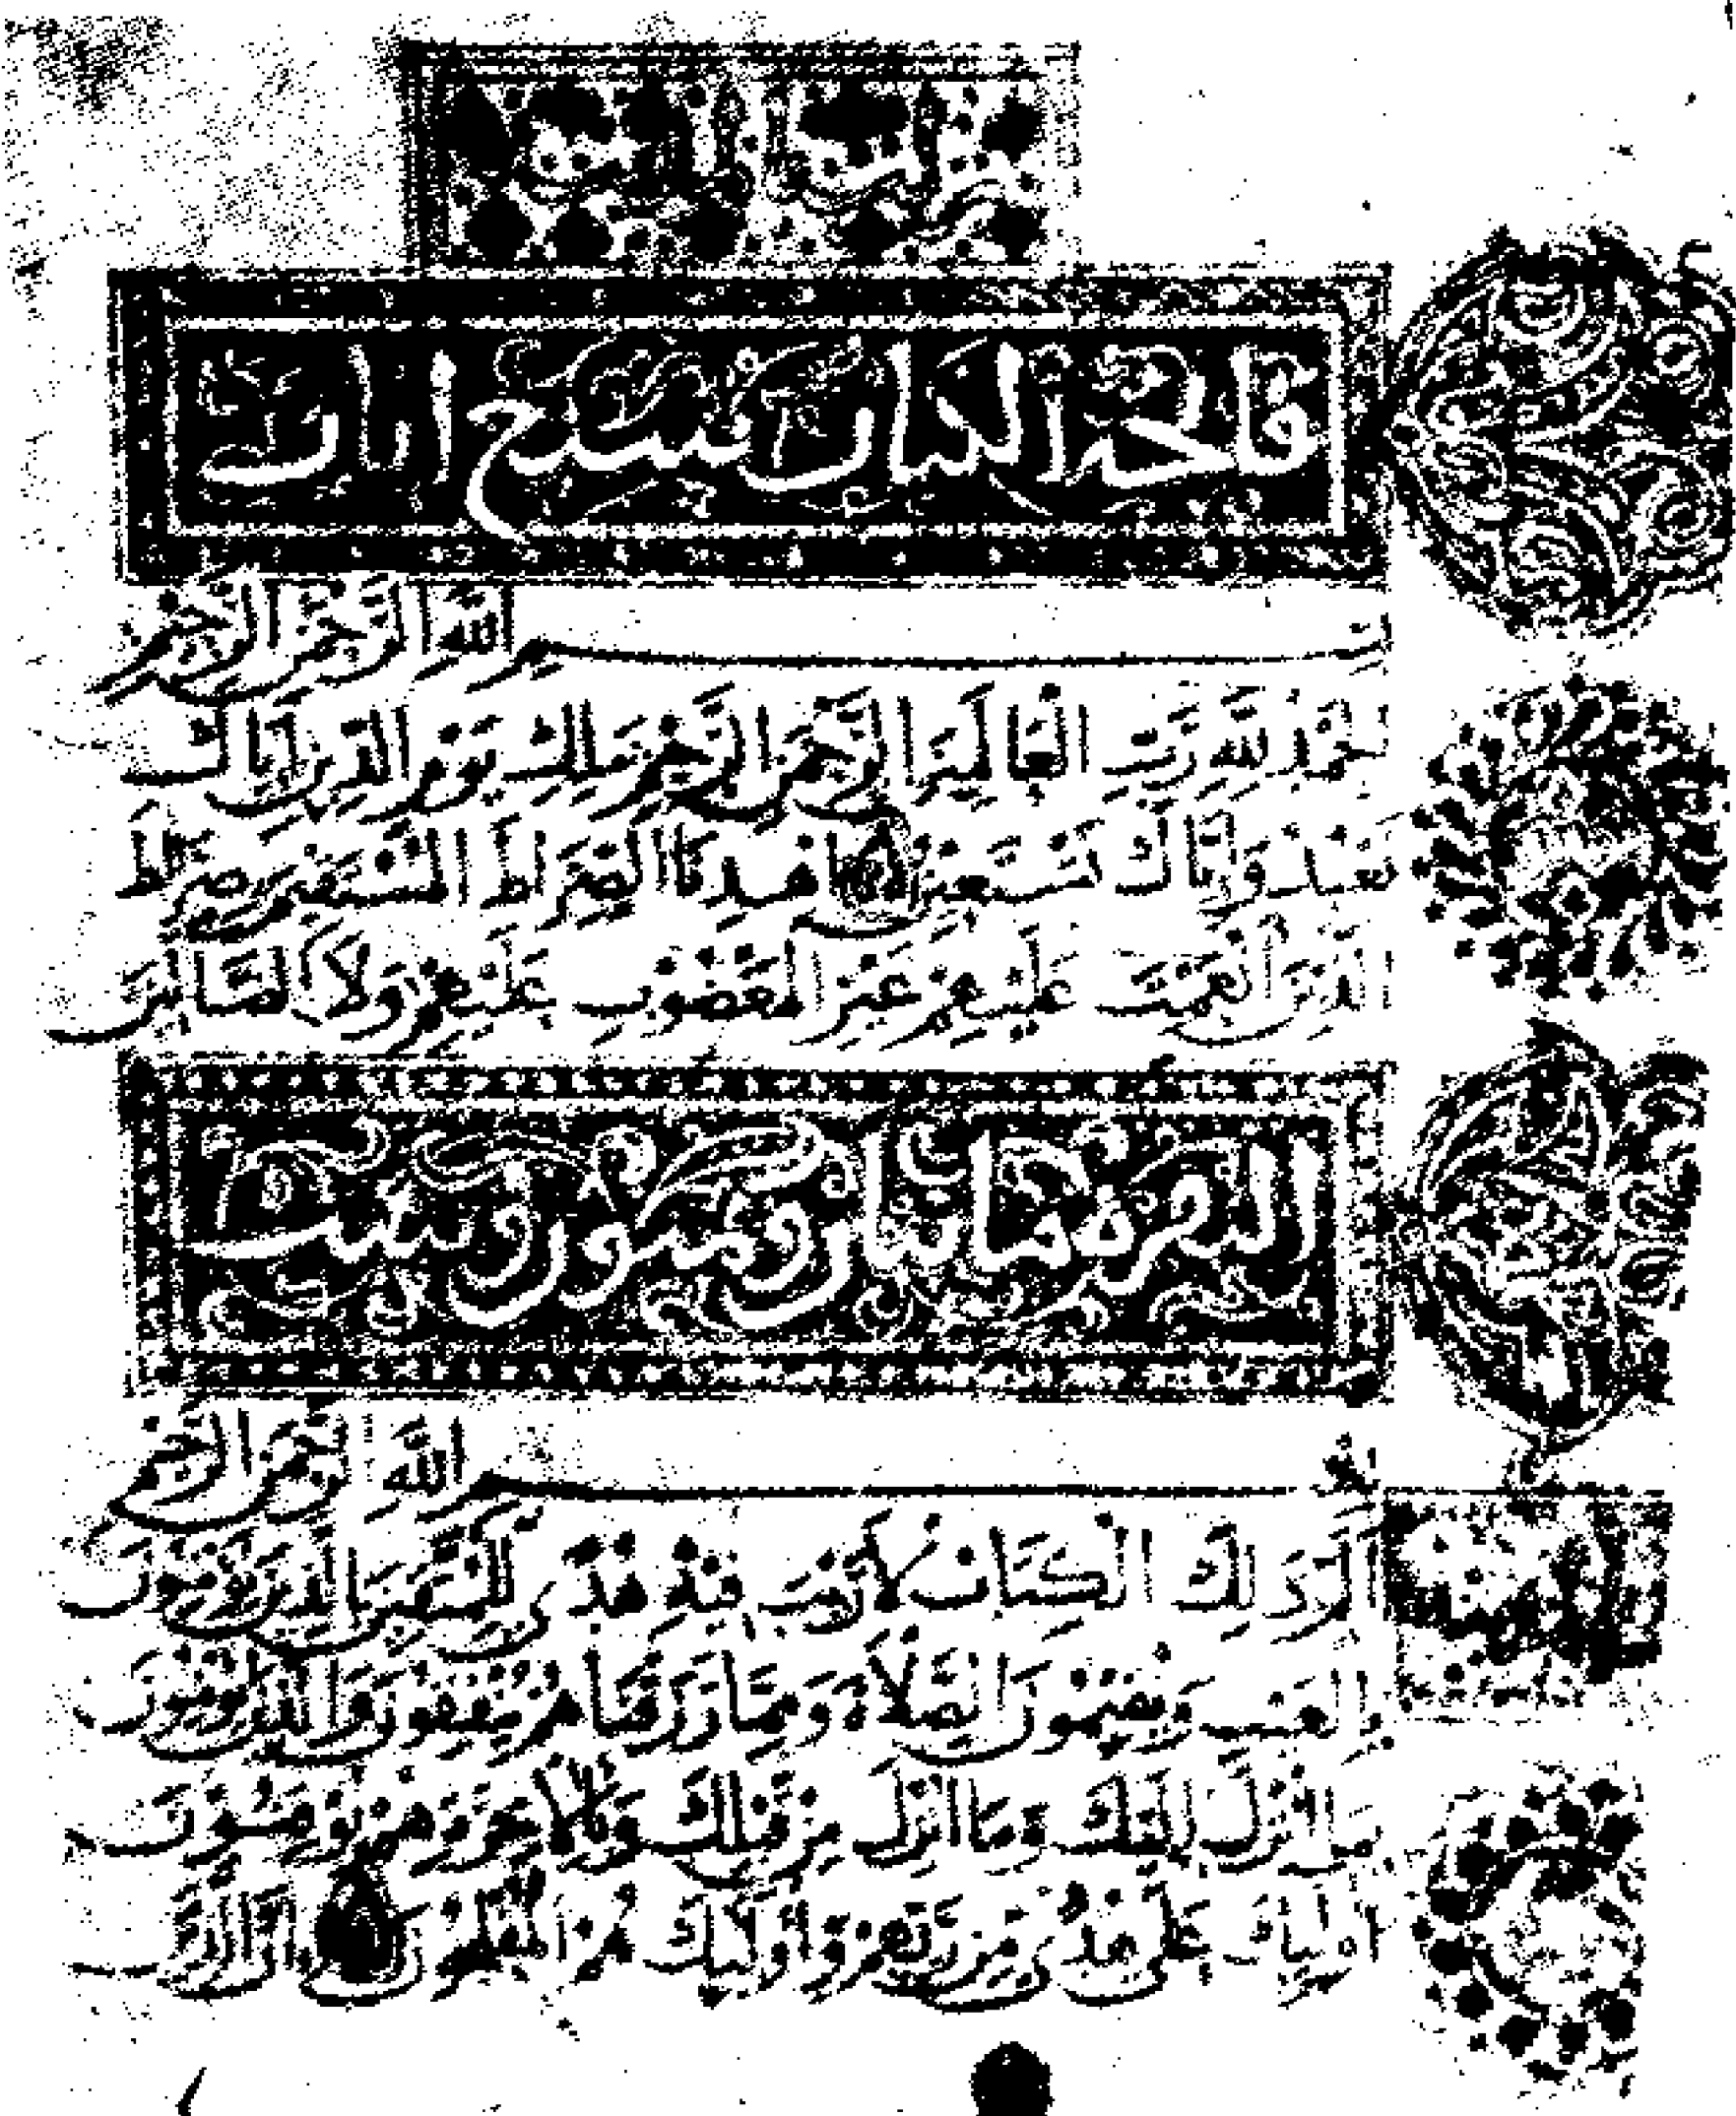 فاتحة الكتاب سبع ايات
بِسْمِ اللَّهِ الرَّحْمَنِ الرَّحِيمِ
الْحَمْدُ لِلَّهِ رَبِّ الْعَالَمِينَ الرَّحْمَنِ الرَّحِيمِ مَلِكِ يَوْمِ الدِّينِ إِيَّاكَ
نَعْبُدُ وَإِيَّاكَ نَسْتَعِينُ اهْدِنَا الصِّرَاطَ الْمُسْتَقِيمَ صِرَاطَ
الَّذِينَ أَنْعَمْتَ عَلَيْهِمْ غَيْرِ الْمَغْضُوبِ عَلَيْهِمْ وَلَا الضَّالِّينَ
البقرة مايتان وست
بِسْمِ اللَّهِ الرَّحْمَنِ الرَّحِيمِ
الم ذَلِكَ الْكِتَابُ لَا رَيْبَ فِيهِ هُدًى لِلْمُتَّقِينَ الَّذِينَ يُؤْمِنُونَ
بِالْغَيْبِ وَيُقِيمُونَ الصَّلَاةَ وَمِمَّا رَزَقْنَاهُمْ يُنْفِقُونَ وَالَّذِينَ يُؤْمِنُونَ
بِمَا أُنْزِلَ إِلَيْكَ وَمَا أُنْزِلَ مِنْ قَبْلِكَ وَبِالْآخِرَةِ هُمْ يُوقِنُونَ
أُولَئِكَ عَلَى هُدًى مِنْ رَبِّهِمْ وَأُولَئِكَ هُمُ الْمُفْلِحُونَ إِنَّ الَّذِينَ